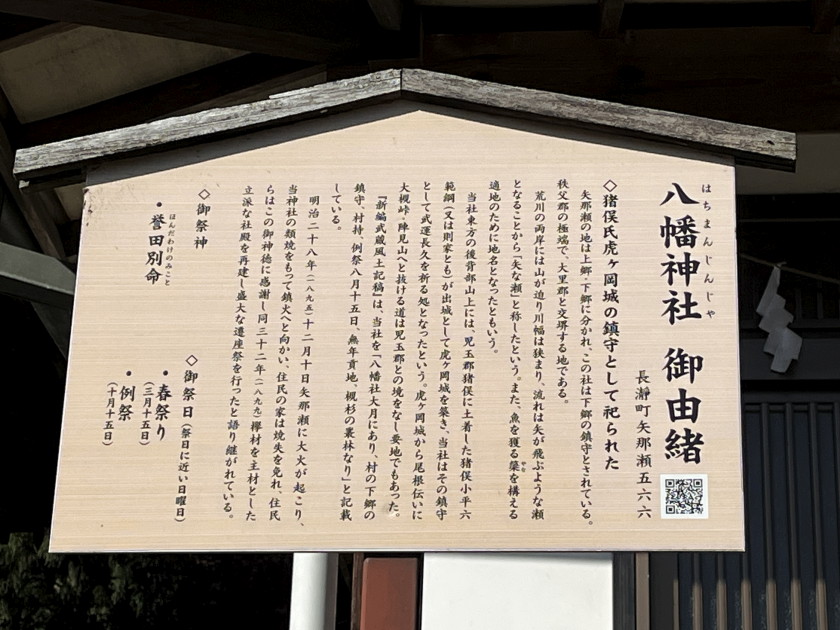 八幡神社 御由緒
はちまんじんじゃ
長瀞町矢那瀬五六六
◇猪俣氏虎ヶ岡城の鎮守として祀られた
矢那瀬の地は上郷・下郷に分かれ、この社は下郷の鎮守とされている。
秩父郡の極端で、大里郡と交堺する地である。
荒川の両岸には山が迫り川幅は狭まり、流れは矢が飛ぶような瀬
となることから「矢な瀬」と称したという。また、魚を獲る簗を構える
やな
適地のために地名となったともいう。
当社東方の後背部山上には、児玉郡猪俣に土着した猪俣小平六
範綱(又は則家とも)が出城として虎ヶ岡城を築き、当社はその鎮守
として武運長久を祈る処となったという。虎ヶ岡城から尾根伝いに
大槻峠・陣見山へと抜ける道は児玉郡との境をなし要地でもあった。
『新編武蔵風土記稿』は、当社を「八幡社大月にあり、村の下郷の
鎮守、村持、例祭八月十五日、無年貢地、槻杉の叢林なり」と記載
している。
明治二十八年(一八九五)十二月十日矢那瀬に大火が起こり、
当神社の類焼をもって鎮火へと向かい、住民の家は焼失を免れ、住民
らはこの御神徳に感謝し同三十二年(一八九九)欅材を主材とした
立派な社殿を再建し盛大な遷座祭を行ったと語り継がれている。
◇御祭神
・誉田別命
ほんだわけのみこと
◇御祭日(祭日に近い日曜日)
・春祭り
(三月十五日)
・例祭
(十月十五日)